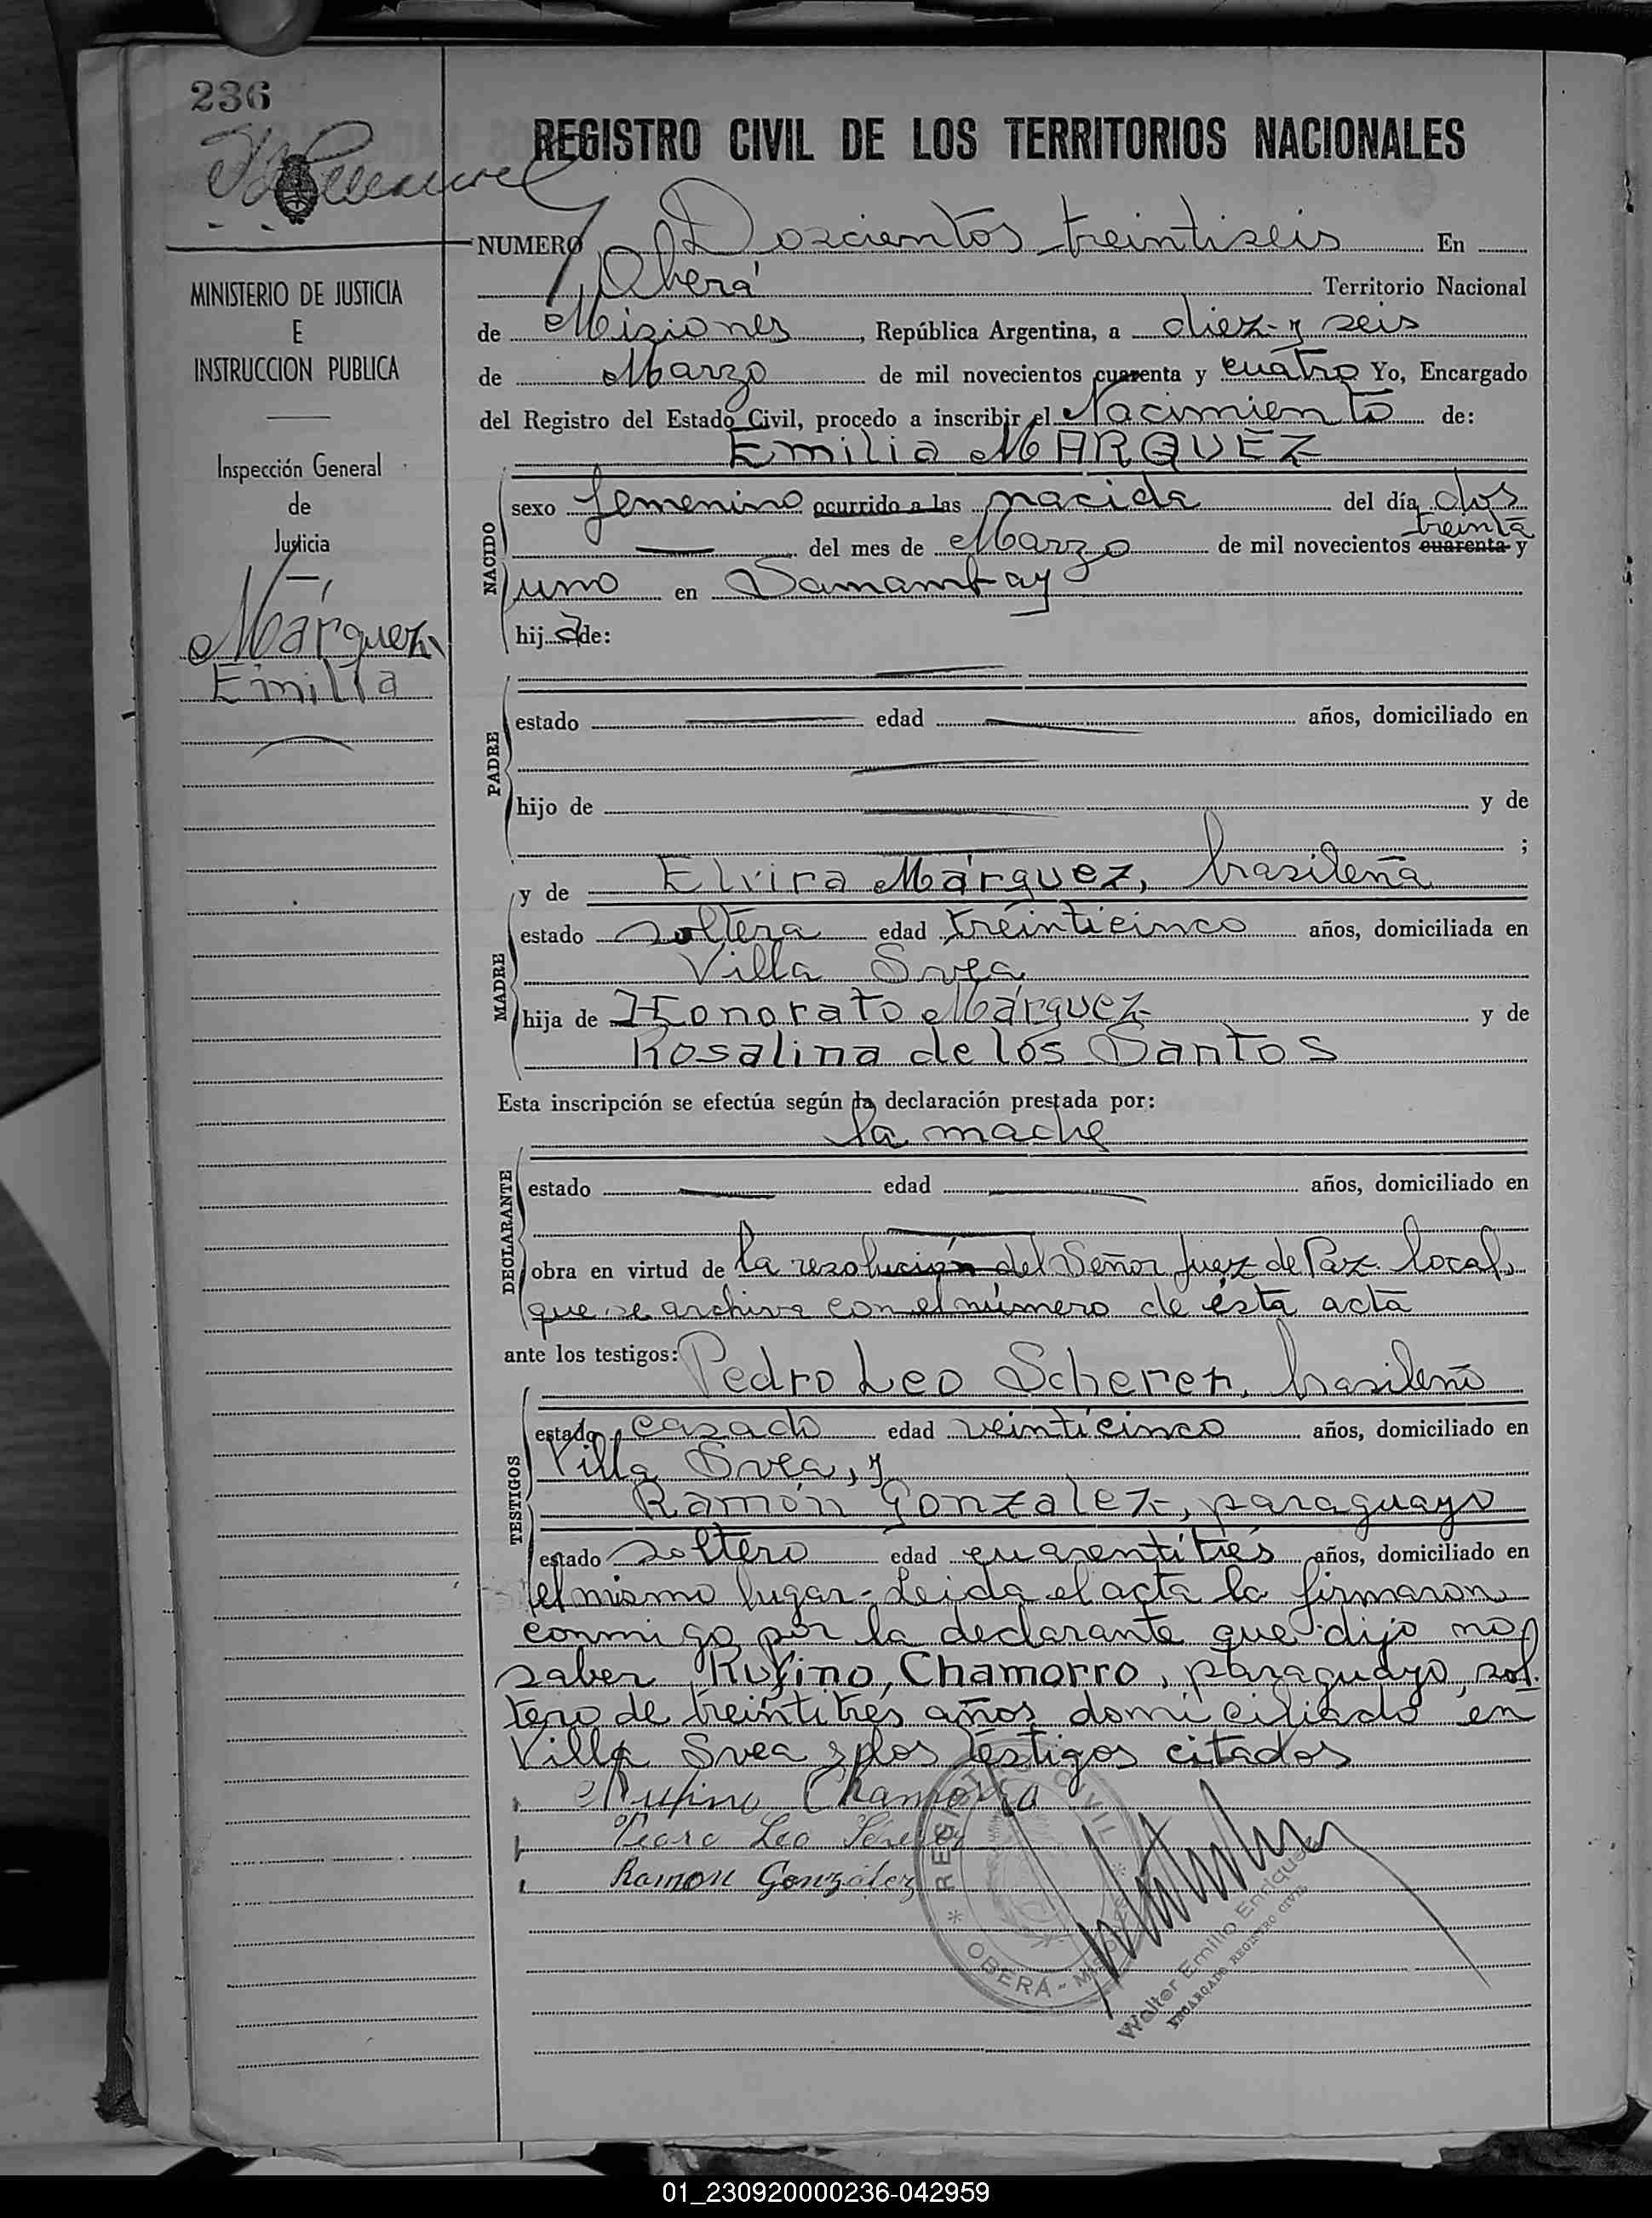 236
REGISTRO CIVIL DE LOS TERRITORIOS NACIONALES
NUMERO Doscientos treintiseis En
Oberá Territorio Nacional
de Misiones, República Argentina, a diez y seis
de Marzo de mil novecientos cuarenta y cuatro Yo, Encargado
del Registro del Estado Civil, procedo a inscribir el Nacimiento de:
Emilia MARQUEZ
MINISTERIO DE JUSTICIA
E
INSTRUCCION PUBLICA
Inspección General
de
Justicia
Márquez
Emilia
NACIDO
sexo femenino ocurrido a las nacida del día dos
treinta
del mes de Marzo de mil novecientos cuarenta y
uno en
hij a de:
PADRE
estado edad años, domiciliado en
hijo de y de
;
MADRE
y de Elvira Márquez, brasileña
estado soltera edad treinticinco años, domiciliada en
Villa Svea
hija de Honorato Márquez y de
Rosalina de los Santos
Esta inscripción se efectúa según la declaración prestada por:
la madre
DECLARANTE
estado edad años, domiciliado en
obra en virtud de la resolución del Señor Juez de Paz local,
que se archiva con el número de ésta acta
ante los testigos: Pedro Leo Scherer, brasileño
TESTIGOS
estado casado edad veinticinco años, domiciliado en
Villa Svea, y
Ramón Gonzalez, paraguayo
estado soltero edad cuarentitrés años, domiciliado en
el mismo lugar - Leida el acta la firmaron
conmigo por la declarante que dijo no
saber Rufino Chamorro, paraguayo, sol-
tero de treintitrés años domiciliado en
Villa Svea y los testigos citados
Rufino Chamorro
Pedro Leo
Ramon Gonzalez
REGISTRO CIVIL
* OBERÁ - MISIONES *
Walter Emilio Enrique
ENCARGADO REGISTRO CIVIL
01_230920000236-042959